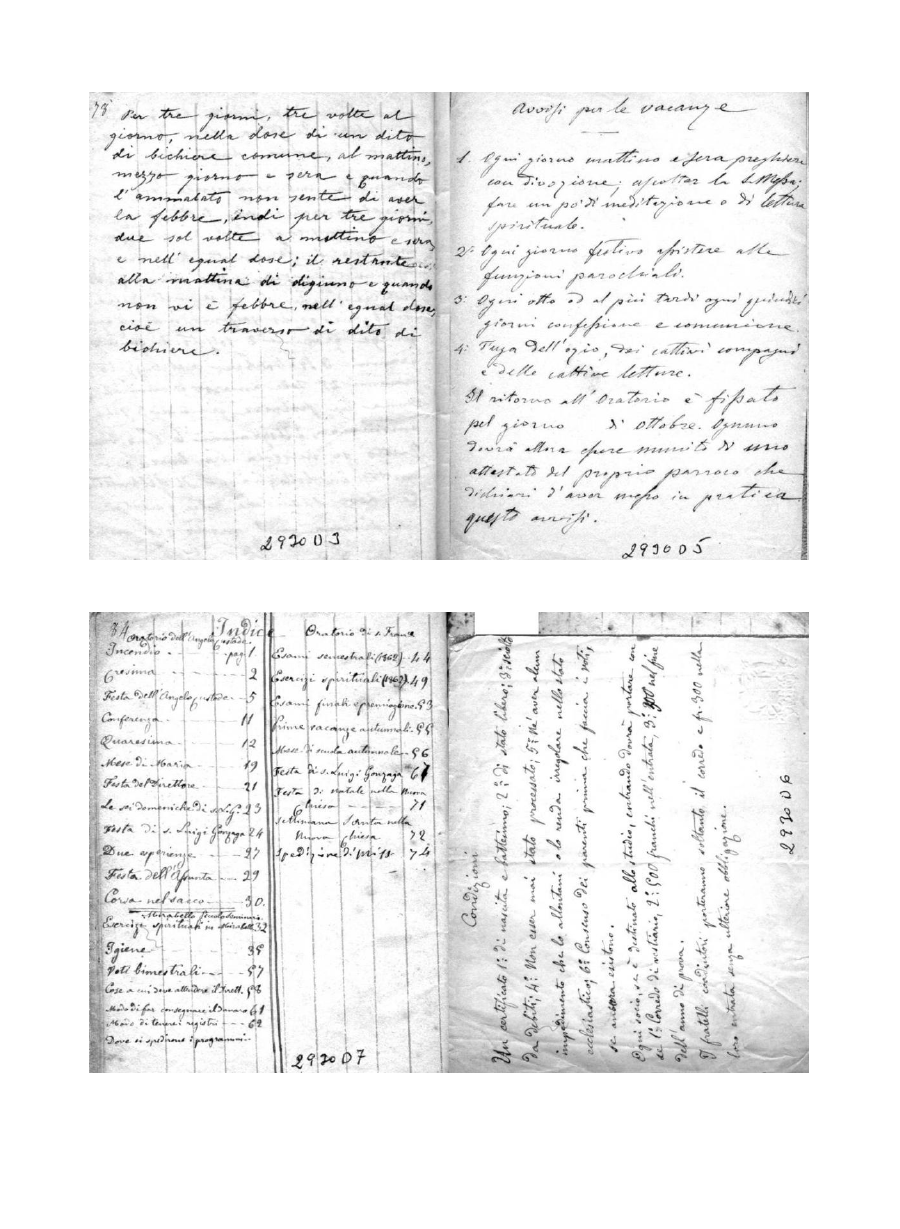 78
Per tre giorni, tre volte al
giorno, nella dose di un dito
di bichiere comune, al mattino,
mezzo giorno e sera e quando
l'ammalato non sente di aver
la febbre, indi per tre giorni,
due sol volte a mattino e sera
e nell'equal dose; il restante
alla mattina di digiuno e quando
non vi è febbre, nell'equal dose,
cioè un traverso di dito di
bichiere.
29300 3
Avvisi per le vacanze
1. Ogni giorno mattino e sera preghiere
con divozione; ascoltar la S. Messa;
fare un po' di meditazione o di lettura
spirituale.
2: Ogni giorno festivo assistere alle
funzioni parochiali.
3: Ogni otto od al più tardi ogni quindici
giorni confessione e comunione.
4: Fuga dell'ozio, dei cattivi compagni
e delle cattive letture.
Il ritorno all'Oratorio è fissato
pel giorno di Ottobre. Ognuno
dovrà allora essere munito di uno
attestato del proprio parroco che
dichiari d'aver messo in pratica
questi avvisi.
2930 D 5
84
Indice
Oratorio dell'Angelo Custode.
Incendio - pag. 1
Cresima - - - 2
Festa dell'Angelo Custode - 5
Conferenza - - - 11
Quaresima - - - 12
Mese di Maria - - - 19
Festa del Direttore - - - 21
Le sei domeniche di s. Luigi 23
Festa di s. Luigi Gonzaga 24
Due esperienze - - - 27
Festa dell'Assunta - - 29
Corsa nel sacco - - - 30
Mirabello piccolo Seminario.
Esercizi spirituali in Mirabello 32
Igiene - - - 35
Voti bimestrali - - - 57
Cose a cui deve attendere il Dirett. 58
Modo di far consegnare il danaro 61
Modo di tenere i registri - - - 62
Dove si spediscono i programmi -
Oratorio di s. Franc
Esami semestrali (1862) - 44
Esercizi spirituali (1862) - 49
Esami finali e premiazione. 53
Prime vacanze autunnali - 55
Mese di scuola autunnale - 56
Festa di s. Luigi Gonzaga 67
Festa di natale nella nuova
Chiesa - - - 71
Settimana Santa nella
nuova Chiesa - 72
Spedizione di - 74
2930 D 7
Condizioni
Un certificato 1: di nascita e battesimo; 2: di stato libero; 3: sciolto
da debiti; 4: Non esser mai stato processato; 5: Né aver alcun
impedimento che lo allontani o lo renda irregolare nello stato
ecclesiastico; 6: Consenso dei parenti prima che faccia i voti,
se ancora esistono.
Ogni socio, se è destinato allo studio, entrando dovrà portare con
sé 1: Corredo di vestiario, 2: 500 franchi nell'entrata, 3: 300 nel fine
dell'anno di prova.
I fratelli coadiutori porteranno soltanto il corredo e fr. 300 nella
loro entrata senza ulteriore obbligazione.
2930 D 6